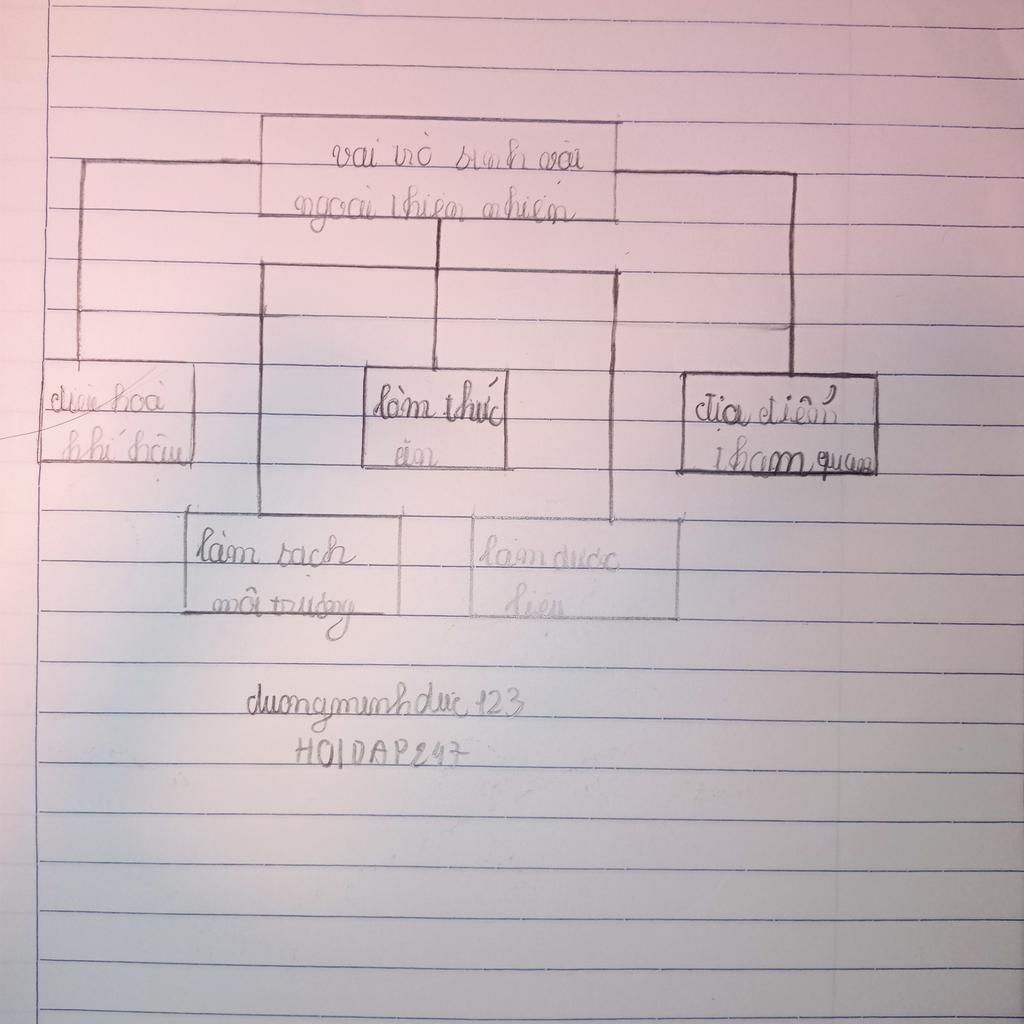 vai trò sinh vật
ngoài thiên nhiên
điều hoà
khí hậu
làm thức
ăn
địa điểm
tham quan
làm sạch
môi trường
làm dược
liệu
duongminhduc123
HOIDAP247